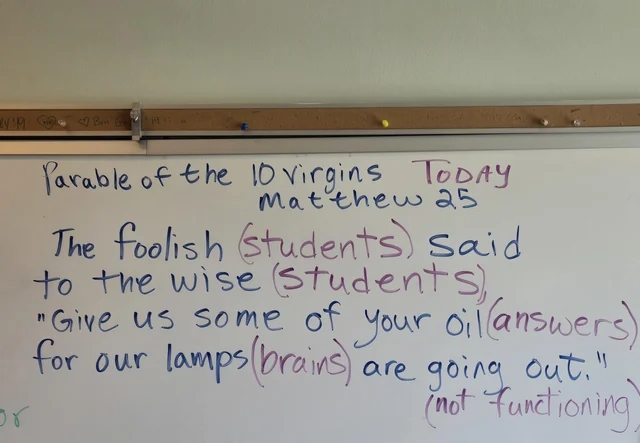 Parable of the 10 Virgins TODAY
Matthew 25
The foolish (students) said
to the wise (students),
"Give us some of your oil (answers)
for our lamps (brains) are going out."
(not functioning)
or